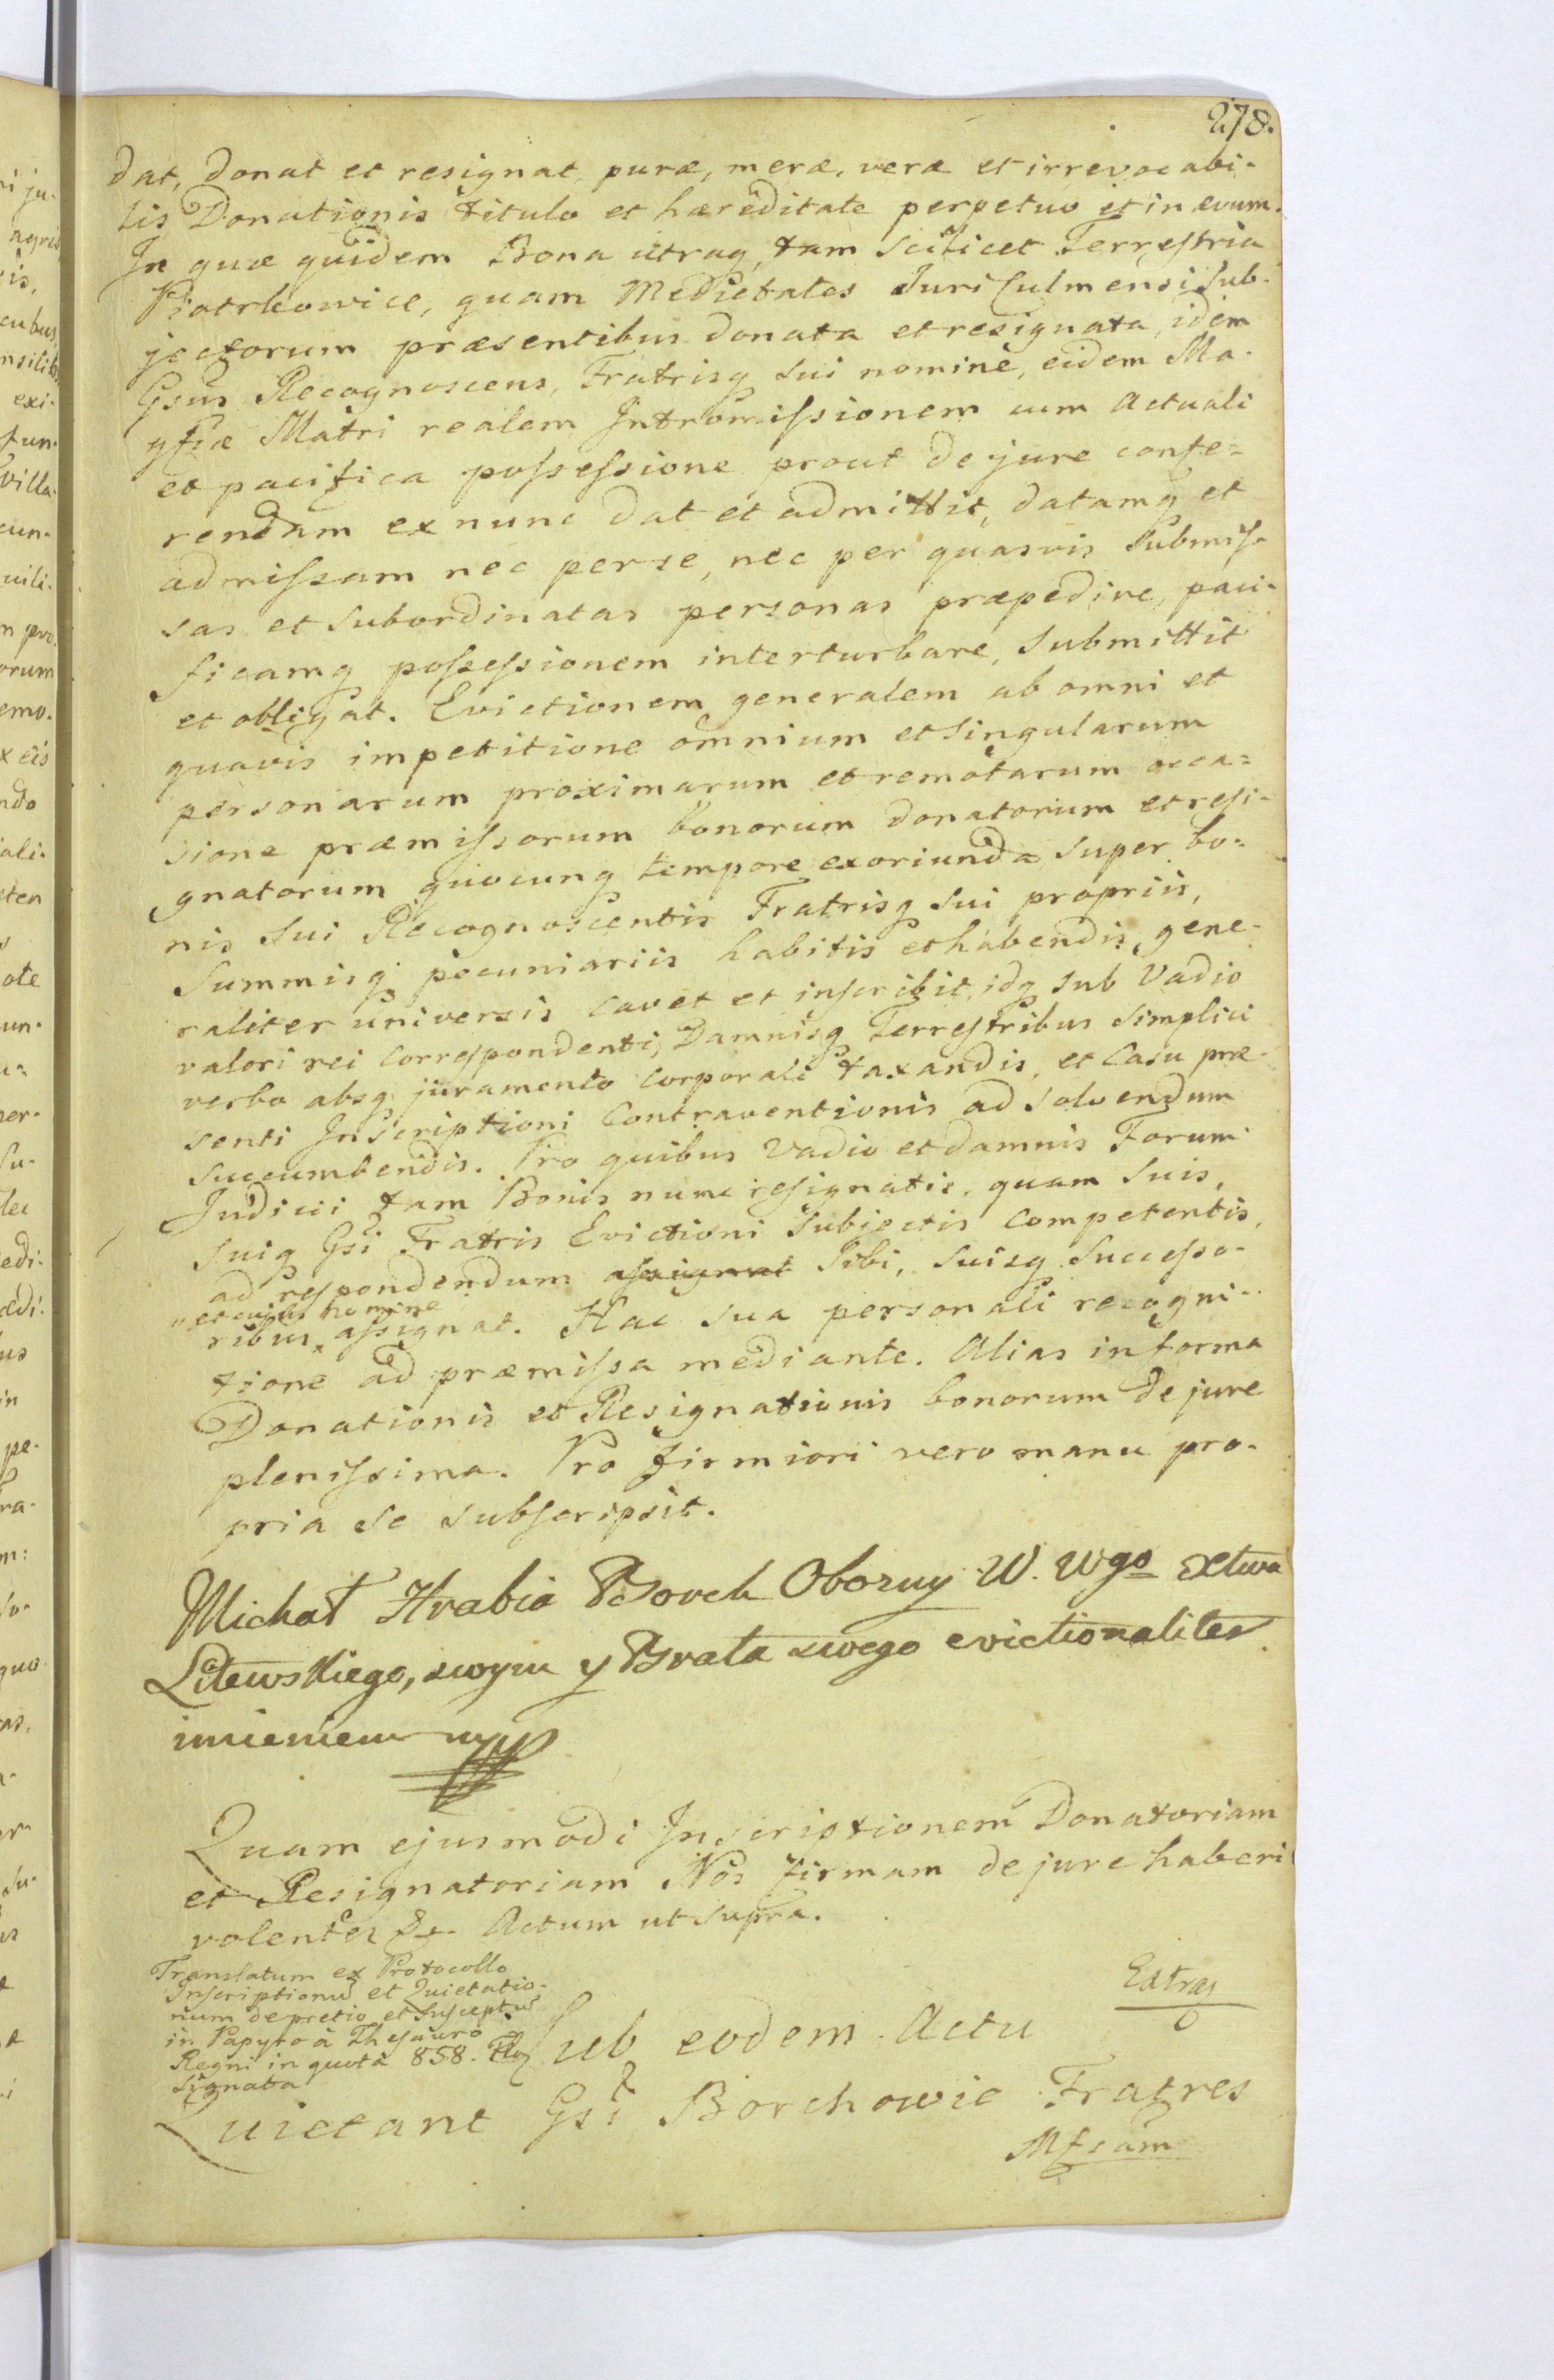 278.
dat, donat et resignat, puræ, meræ, veræ et irrevocabi-
lis Donationis titulo et hæreditate perpetuo et in ævum.
In quæ quidem Bona utraq, tam scilicet Terrestria
Piotrkowice, quam Medietates Juri Culmensi Sub-
jectorum præsentibus donata et resignata, idem
Gsus Recognoscens, Fratrisq sui nomine, eidem Ma-
gfiæ Matri realem Intromissionem cum actuali
et pacifica possessione prout de jure confe=
rendam ex nunc dat et admittit, datamq et
admissam nec per se, nec per quasvis Submis-
sas et subordinatas personas præpedire, paci-
ficamq possessionem interturbare, Submittit
et obligat. Evictionem generalem ab omni et
quavis impetitione omnium et singularum
personarum proximarum et remotarum occa=
sione præmissorum bonorum donatorum et resi-
gnatorum quocunq tempore exoriunda super bo-
nis sui Recognoscentis Fratrisq sui propriis,
Summisq pecuniariis habitis et habendis, gene-
raliter universis cavet et inscribit, idq sub Vadio
valori rei correspondenti, Damnisq Terrestribus simplici
verbo absq juramento corporali taxandis, et Casu præ-
senti Inscriptioni Contraventionis ad solvendum
succumbendis. Pro quibus Vadio et damnis Forum
Judicii tam Bonis nunc resignatis, quam suis,
suiq Gsi Fratris Evictioni subjectis Competentis,
ad respondendum assignat sibi, suisq Successo-
et cujus nomine
ribus, assignat. Hac sua personali recogni-
tione ad præmissa mediante. Alias in forma
Donationis et Resignationis bonorum de jure
plenissima. Pro firmiori vero manu pro-
pria se subscripsit.
Michał Hrabia Borch Obozny W. Wgo Xtwa
Litewskiego, swym y Brata swego evictionaliter
imieniem mpp
Quam ejusmodi Inscriptionem Donatoriam
et Resignatoriam Nos firmam de jure haberi
volentes &c. Actum ut supra.
Translatum ex Protocollo
Inscriptionu et Quietatio-
num de pretio et Susceptu
in Papyro à Thesauro
Regni in quota 858.
signata
Extras
Sub eodem Actu
Quietant Gsi Borchowie Fratres
Mfcam